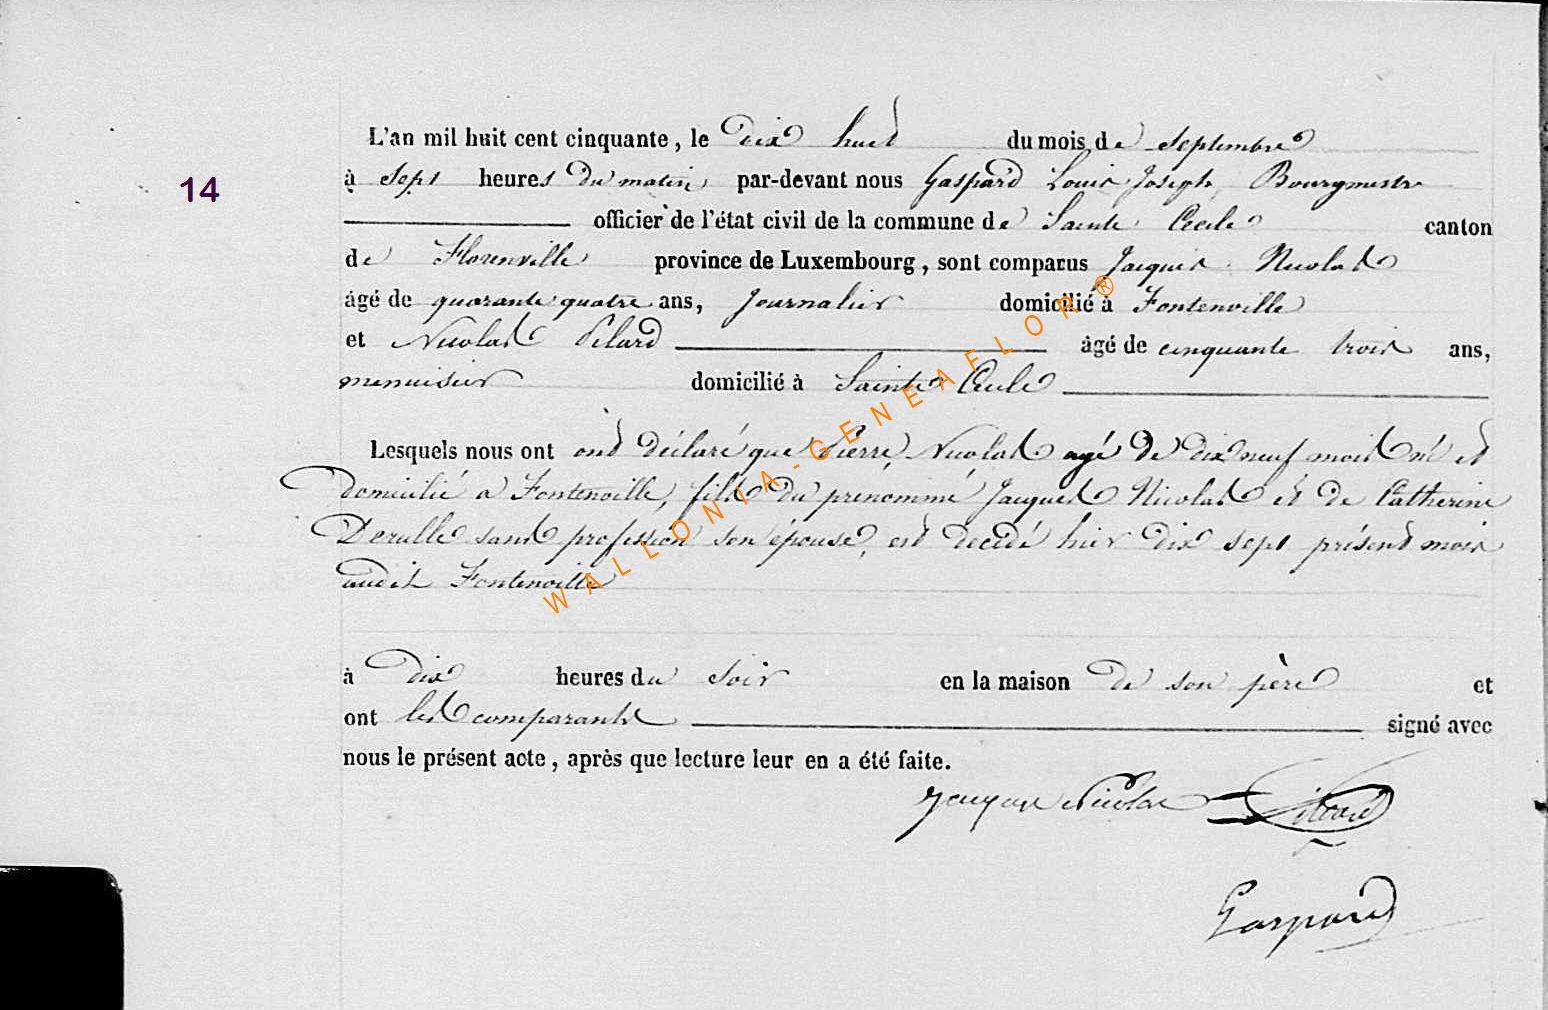 L'an mil huit cent cinquante, le dix huit du mois de Septembre
14
à Sept heures du matin, par-devant nous Gaspard Louis Joseph, Bourgmestre
officier de l'état civil de la commune de Sainte Cecile canton
de Florenville province de Luxembourg, sont comparus Jacques Nicolas
âgé de quarante quatre ans, journalier domicilié à Fontenoille
et Nicolas Pilard âgé de cinquante trois ans,
menuisier domicilié à Sainte Cecile
Lesquels nous ont ont déclaré que Pierre, Nicolas agé de dix neuf mois né et
domicilié a Fontenoille, fils du prénommé Jacques Nicolas et de Catherine
Derulle sans profession son épouse, est decédé hier dix sept présent mois
audit Fontenoille
à dix heures du soir en la maison de son père et
ont les comparants signé avec
nous le présent acte, après que lecture leur en a été faite.
Jacque Nicolas Pilard
Gaspard
WALLONIA-GENEAFLOR®